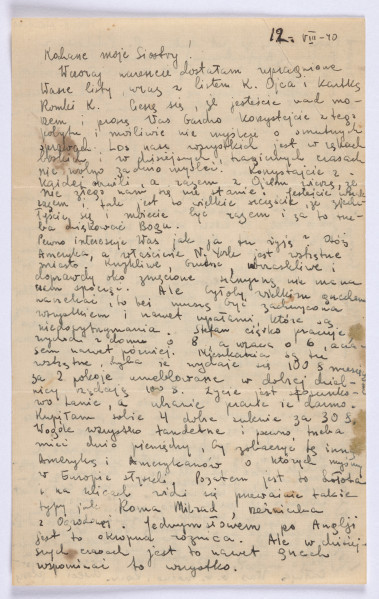 12. VIII-40
Kochane moje Siostry!
Wczoraj nareszcie dostałam upragnione
Wasze listy, wraz z listem K. Ojca i kartką
Romki K. Cieszę się, że jesteście nad mo-
rzem i proszę Was bardzo korzystajcie z tego
pobytu i możliwie nie myślcie o smutnych
Los nas wszystkich jest w rękach
i w dzisiejszych tragicznych czasach
nie wolno żadno myśleć. Korzystajcie z
każdej chwili, a razem z Ojcem
nic złego nam nie stanie. Jesteście
razem i tak jest to wielkie szczęście, że
się i możecie być razem i za to trze-
ba dziękować Bogu.
Pewno interesuje Was jak ja tu żyję. Otóż
Ameryka, a właściwie N. York jest wstrętne
miasto niezwykle brudne wrzaskliwe i
doprawdy oko zmęczone nie ma na
czem spocząć. Ale byłoby wielkim grzechem
narzekać, to też muszę być zachwycona
wszystkiem i nawet upałami, które są
nie do wytrzymania. Stefan ciężko pracuje
wychodzi z domu o 8, a wraca o 6, a cza-
sem nawet później. Mieszkania są tu
wstrętne, tylko że wydaje się 100 $ mies.
za 2 pokoje umeblowane w dobrej dziel-
nicy żądają 100 $. Życie jest
wo! tanie, a ubranie prawie że darmo.
Kupiłam sobie 4 dobre suknie za 30 $.
Wogóle wszystko tandetne i pewno trzeba
mieć dużo pieniędzy, by zobaczyć tę inną
Amerykę i Amerykanów o których myśmy
w Europie słyszeli. Pozatem jest to hołota
i na ulicach widzi się przeważnie takie
typy jak Roma Milrad,
z Ogrodowej. Jednym słowem po Anglji
jest to okropna różnica. Ale w dzisiej-
szych czasach jest to nawet grzech
wspominać to wszystko.